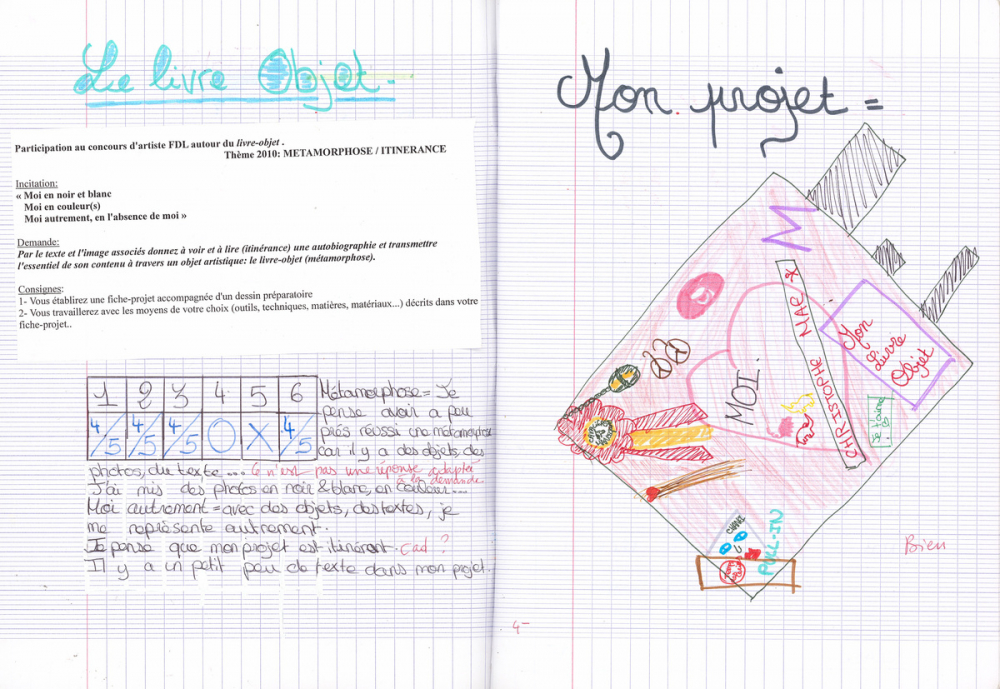 Le livre Objet.
Participation au concours d'artiste FDL autour du livre-objet .
Thème 2010: METAMORPHOSE / ITINERANCE
Incitation:
« Moi en noir et blanc
Moi en couleur(s)
Moi autrement, en l'absence de moi »
Demande:
Par le texte et l'image associés donnez à voir et à lire (itinérance) une autobiographie et transmettre
l'essentiel de son contenu à travers un objet artistique: le livre-objet (métamorphose).
Consignes:
1- Vous établirez une fiche-projet accompagnée d'un dessin préparatoire
2- Vous travaillerez avec les moyens de votre choix (outils, techniques, matières, matériaux...) décrits dans votre
fiche-projet..
1 2 3 4 5 6
4/5 4/5 4/5 O X 4/5
Métamorphose = Je
pense avoir a peu
près réussi une métamorphose
car il y a des objets, des
photos, du texte... Ce n'est pas une réponse adaptée
à la demande.
J'ai mis des photos en noir & blanc, en couleur...
Moi autrement = avec des objets, des textes, je
me représente autrement.
Je pense que mon projet est itinérant. cad ?
Il y a un petit peu de texte dans mon projet.
4-
Mon projet =
M
MOI.
CHRISTOPHE MAE
Mon
Livre
Objet
PULL-IN
Bien